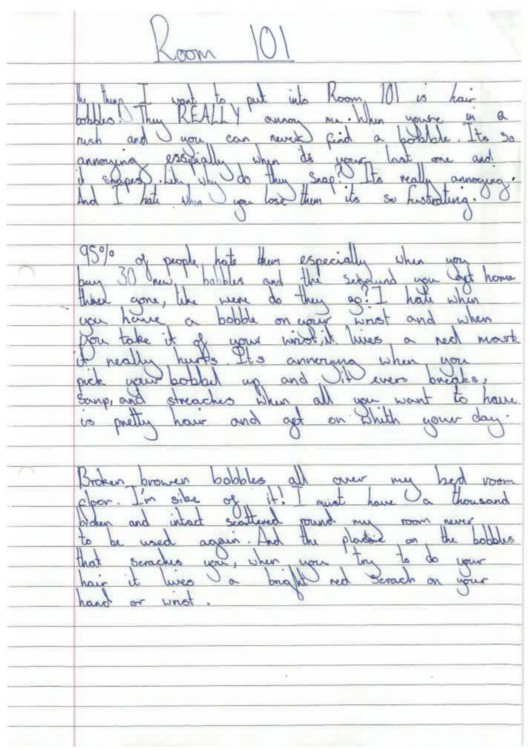 Room 101
The thing I want to put into Room 101 is hair
bobbles! They REALLY annoy me. When youre in a
rush and you can never find a bobble. Its so
annoying esspially when its your last one and
it snapes. Like why do they snap? Its really annoying.
And I hate when you lose them its so fustrating.
95% of people hate them especially when you
buy 30 new bobbles and the you get home
there gone, like were do they go? I hate when
you have a bobble on your wrist and when
you take it of your wrist it lives a red mark
it really hurts. It's annoying when you
pick your bobbel up and it evers breaks,
sanp, and streaches when all you want to have
is pretty hair and get on whith your day.
Broken, browen bobbles all over my bed room
floor. I'm sike of it! I must have a thousand
broken and intact scattered round my room never
to be used again. And the plastic on the bobbles
that scraches you, when you try to do your
hair it lives a bright red scrach on your
hand or wrist.